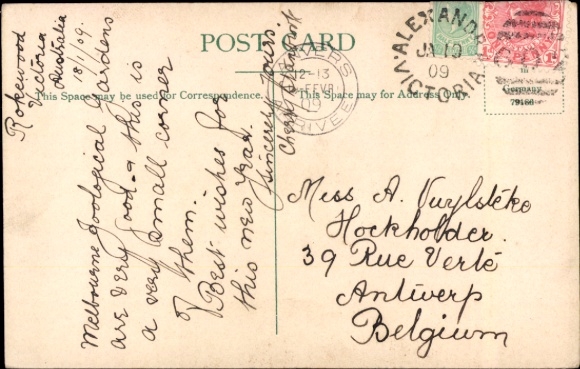 POST CARD
This Space may be used for Correspondence.
This Space may be for Address Only.
Rokewood
Victoria
Australia
18/1/09.
Melbourne Zoological Gardens
are very good - this is
a very small corner
of them.
Best wishes for
this new year.
Sincerely yours.
ALEXANDRA
JA 19
09
VICTORIA
ANVERS
12-13
FEVR
09
ARRIVEE
in
Germany
79160
Miss A. Vuylsteke
Hockholder.
39 Rue Verte
Antwerp
Belgium